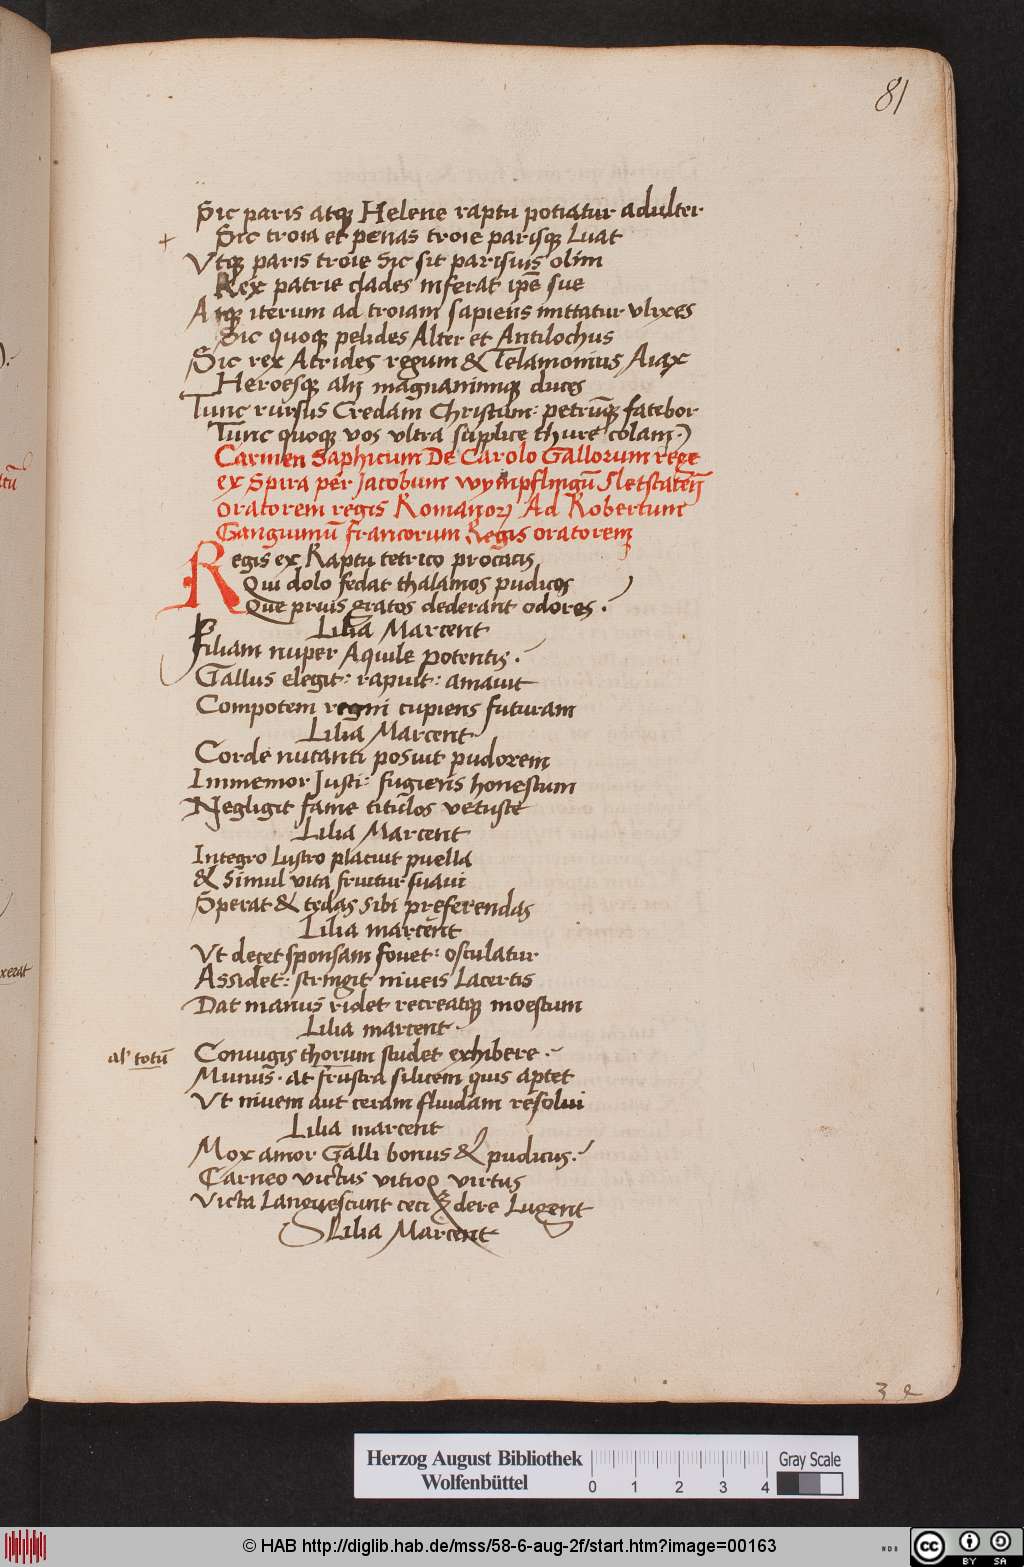 81
Sic paris atqꝫ Helene raptu potiatur adulter
Sic troia et penas troie parisqꝫ Luat
Vtqꝫ paris troie sic sit parisius olim
Rex patrie clades inferat ipē sue
Atqꝫ iterum ad troiam sapiens mittatur vlyxes
Sic quoqꝫ pelides Alter et Antilochus
Sic rex Atrides regum & Telamonius Aiax
Heroesqꝫ alij magnanimiqꝫ duces
Tunc rursus Credam Christum: petrūqꝫ fatebor
Tunc quoqꝫ vos vltra supplice thure colam.)
Carmen Saphicum De Carolo Gallorum rege
ex Spira per Jacobum wympflingū Sletstateñ
oratorem regis Romanorꝝ Ad Robertum
Ganguinū francorum Regis oratorem
Regis ex Raptu tetrico procacis
Qui dolo fedat thalamos pudicos
Que prius gratos dederant odores.
Lilia Marcent
Filiam nuper Aquile potentis.
Gallus elegit: rapuit: amauit
Compotem regni cupiens futuram
Lilia Marcent
Corde nutanti posuit pudorem
Immemor Justi: fugiens honestum
Negligit fame titulos vetuste
Lilia Marcent
Integro Lustro placuit puella
& Simul vita fruitur suaui
Sperat & tedas sibi preferendas
Lilia marcent
Vt decet sponsam fouet: osculatur
Assidet: stringit niueis Lacertis
Dat manus ridet recreatqꝫ moestum
Lilia marcent.
al' totū
Coniugis thorum studet exhibere.
Munus. at frustra silicem quis aptet
Vt niuem aut ceram fluidam resolui
Lilia marcent
Mox amor Galli bonus & pudicus.
Carneo victus vitioqꝫ virtus
Victa Languescunt ceciꝫdere Lugent
Lilia Marcent
Herzog August Bibliothek
Wolfenbüttel
0 1 2 3 4
Gray Scale
© HAB http://diglib.hab.de/mss/58-6-aug-2f/start.htm?image=00163
cc BY SA